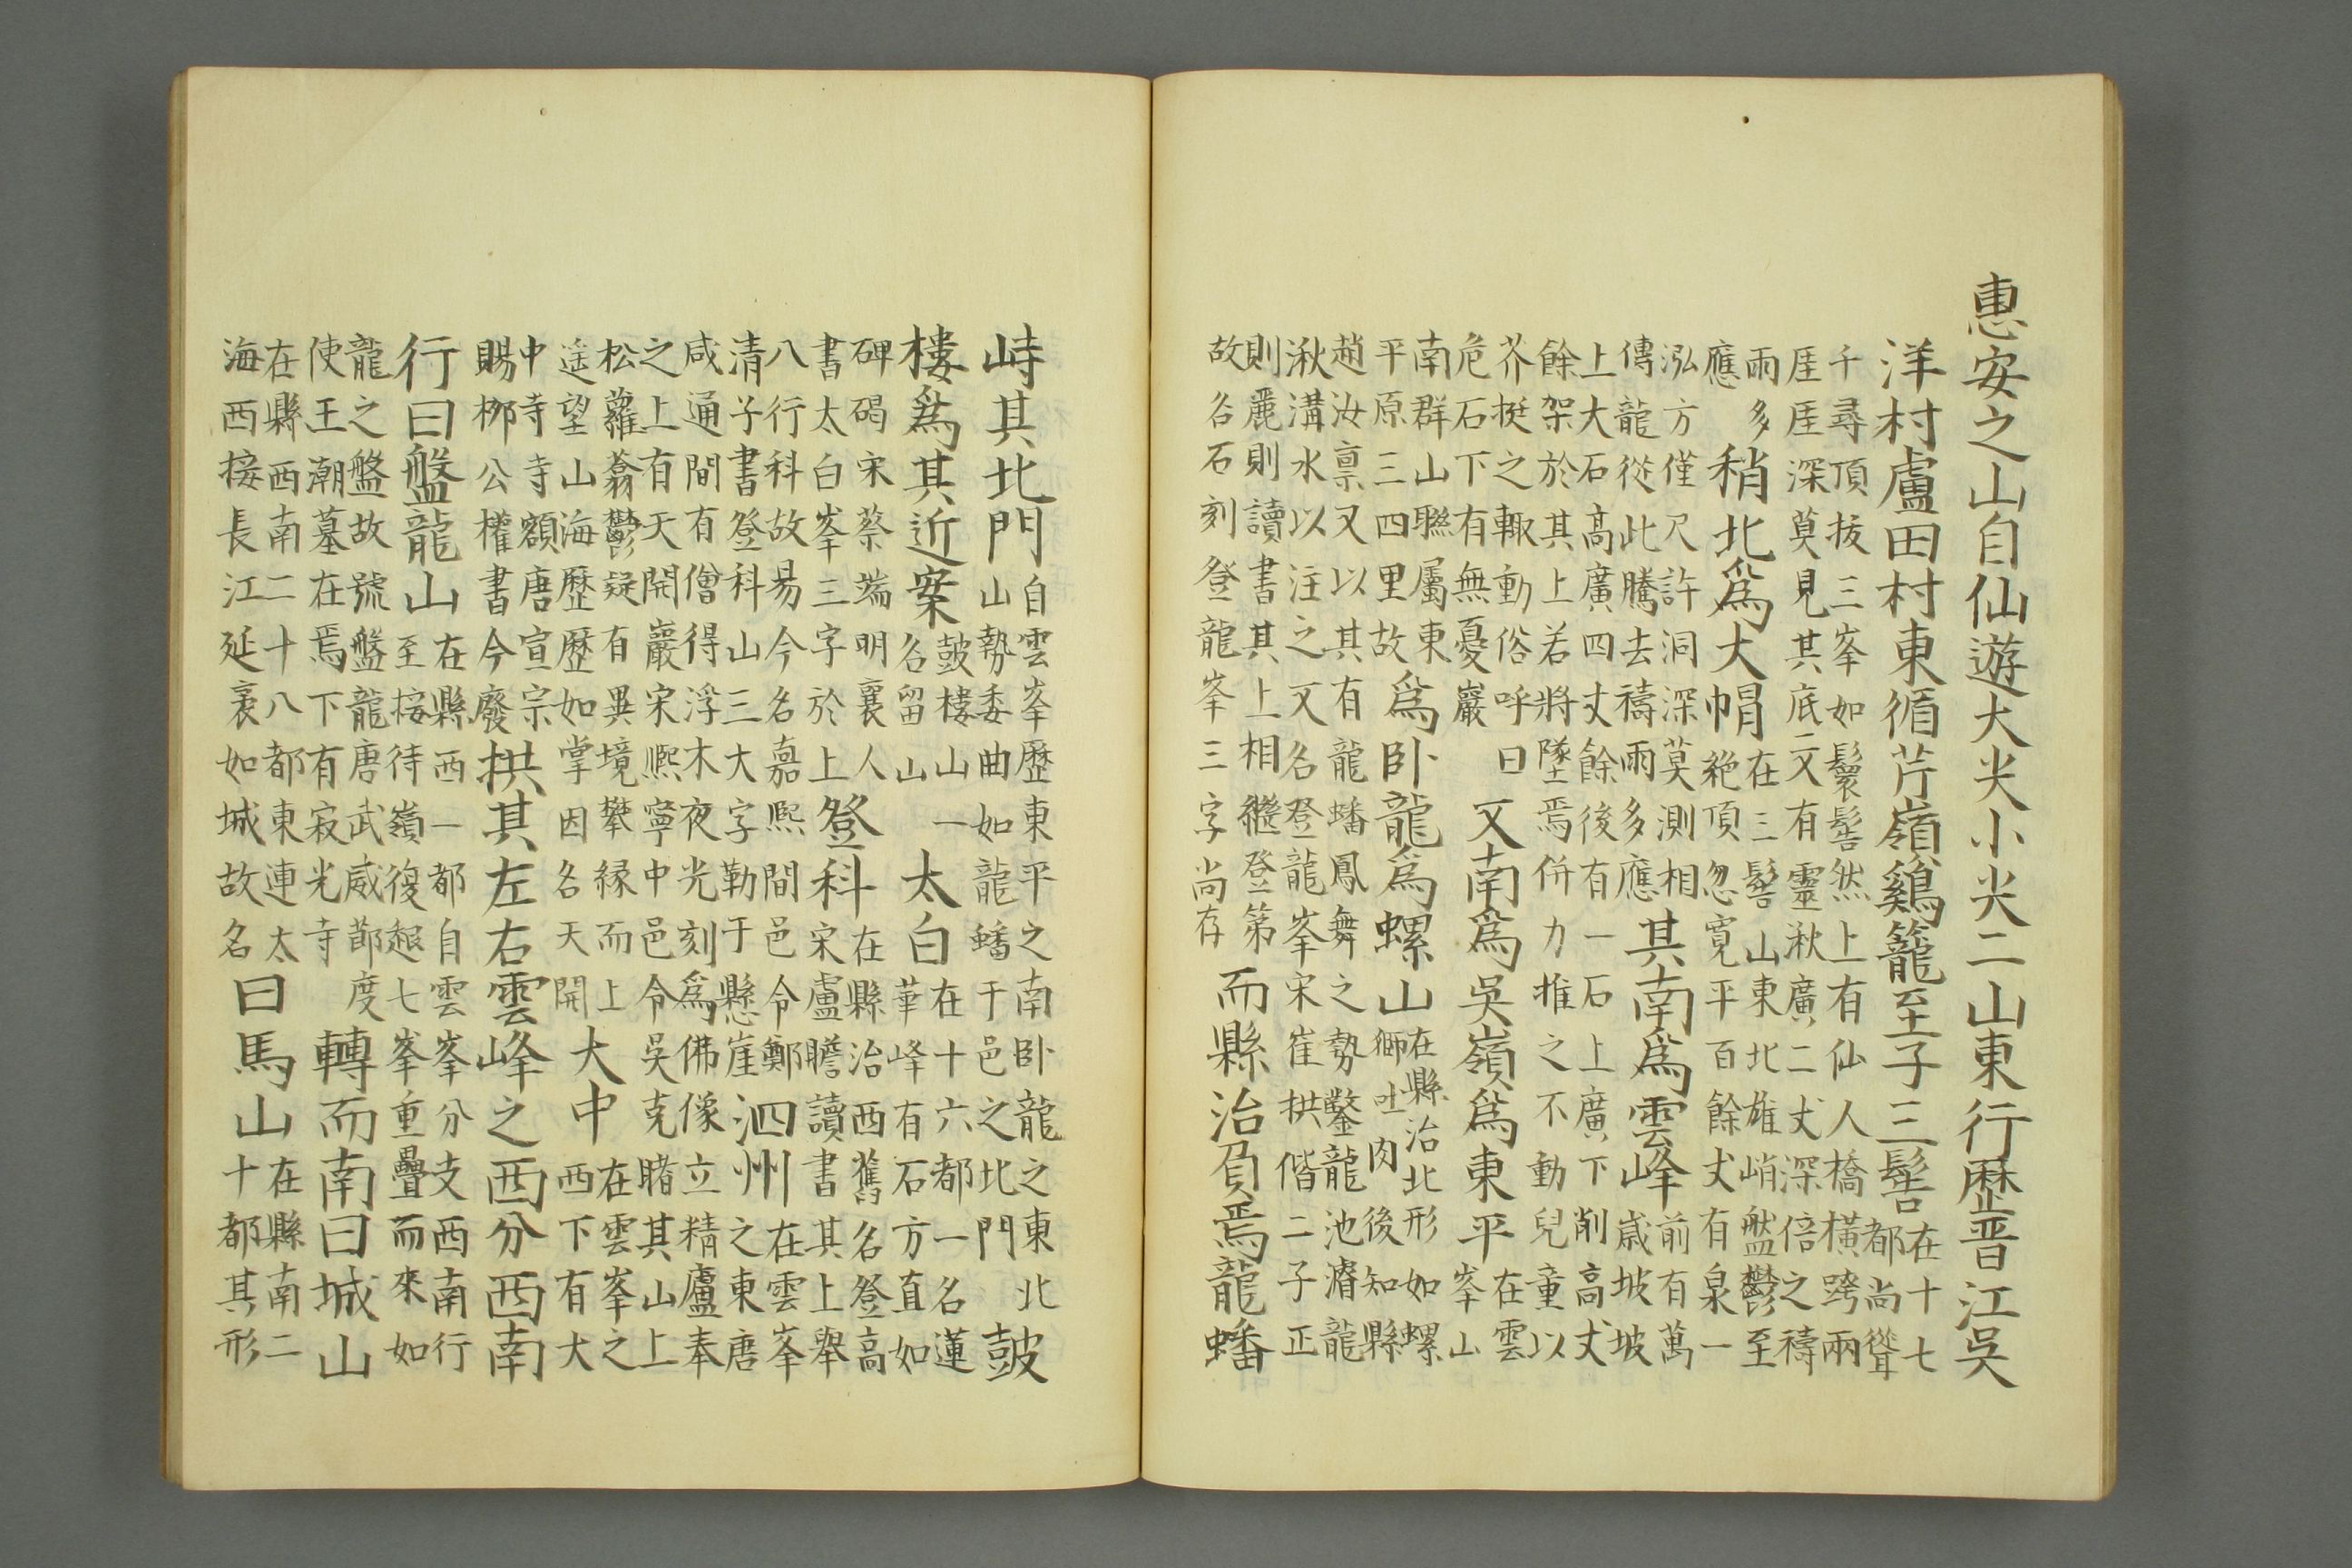 惠安之山自仙遊大尖小尖二山東行歷晋江吳
洋村盧田村東循芹嶺鷄籠至子三髻在十七都尚聳
千尋頂拔三峯如鬟髻然上有仙人橋橫跨兩
厓厓深莫見其底又有靈湫廣二丈深倍之禱
雨多應稍北爲大帽在三髻山東北雄峭盤鬱至絶頂忽寛平百餘丈有泉一
泓方僅尺許洞深莫測相傳龍從此騰去禱雨多應其南爲雲峰前有萬歲坡坡
上大石高廣四丈餘後有一石上廣下削高丈
餘架於其上若將墜焉併力推之不動兒童以
芥挺之輒動俗呼曰危石下有無憂巖又南爲吳嶺爲東平在雲峯山
南群山聯屬東平原三四里故爲卧龍爲螺山在縣治北形如螺獅吐肉後知縣
趙汝禀又以其有龍蟠鳳舞之勢鑿龍池濬龍
湫溝水以注之又名登龍峯宋崔拱偕二子正
則麗則讀書其上相繼登第故名石刻登龍峯三字尚存而縣治負焉龍蟠
峙其北門自雲峯歷東平之南卧龍之東北山勢委曲如龍蟠于邑之北門鼓
樓爲其近案鼓樓山一名留山太白在十六都一名蓮華峰有石方直如
碑碣宋蔡端明襄人書太白峯三字於上登科在縣治西舊名登高宋盧瞻讀書其上舉
八行科故易今名嘉熈間邑令鄭清子書登科山三大字勒于懸崖泗州在雲峯之東唐
咸通間有僧得浮木夜光刻爲佛像立精廬奉
之上有天開巖宋熈寧中邑令吳克睹其山上
松蘿蓊鬱疑有異境攀縁而上遥望山海歷歷如掌因名天開大中在雲峯之西下有大
中寺寺額唐宣宗賜栁公權書今廢拱其左右雲峰之西分西南
行曰盤龍山在縣西一都自雲峯分支西南行至接待嶺復起七峯重疊而來如
龍之盤故號盤龍唐武威節度使王潮墓在焉下有寂光寺轉而南曰城山
在縣西南二十八都東連太海西接長江延袤如城故名曰馬山在縣南二十都其形